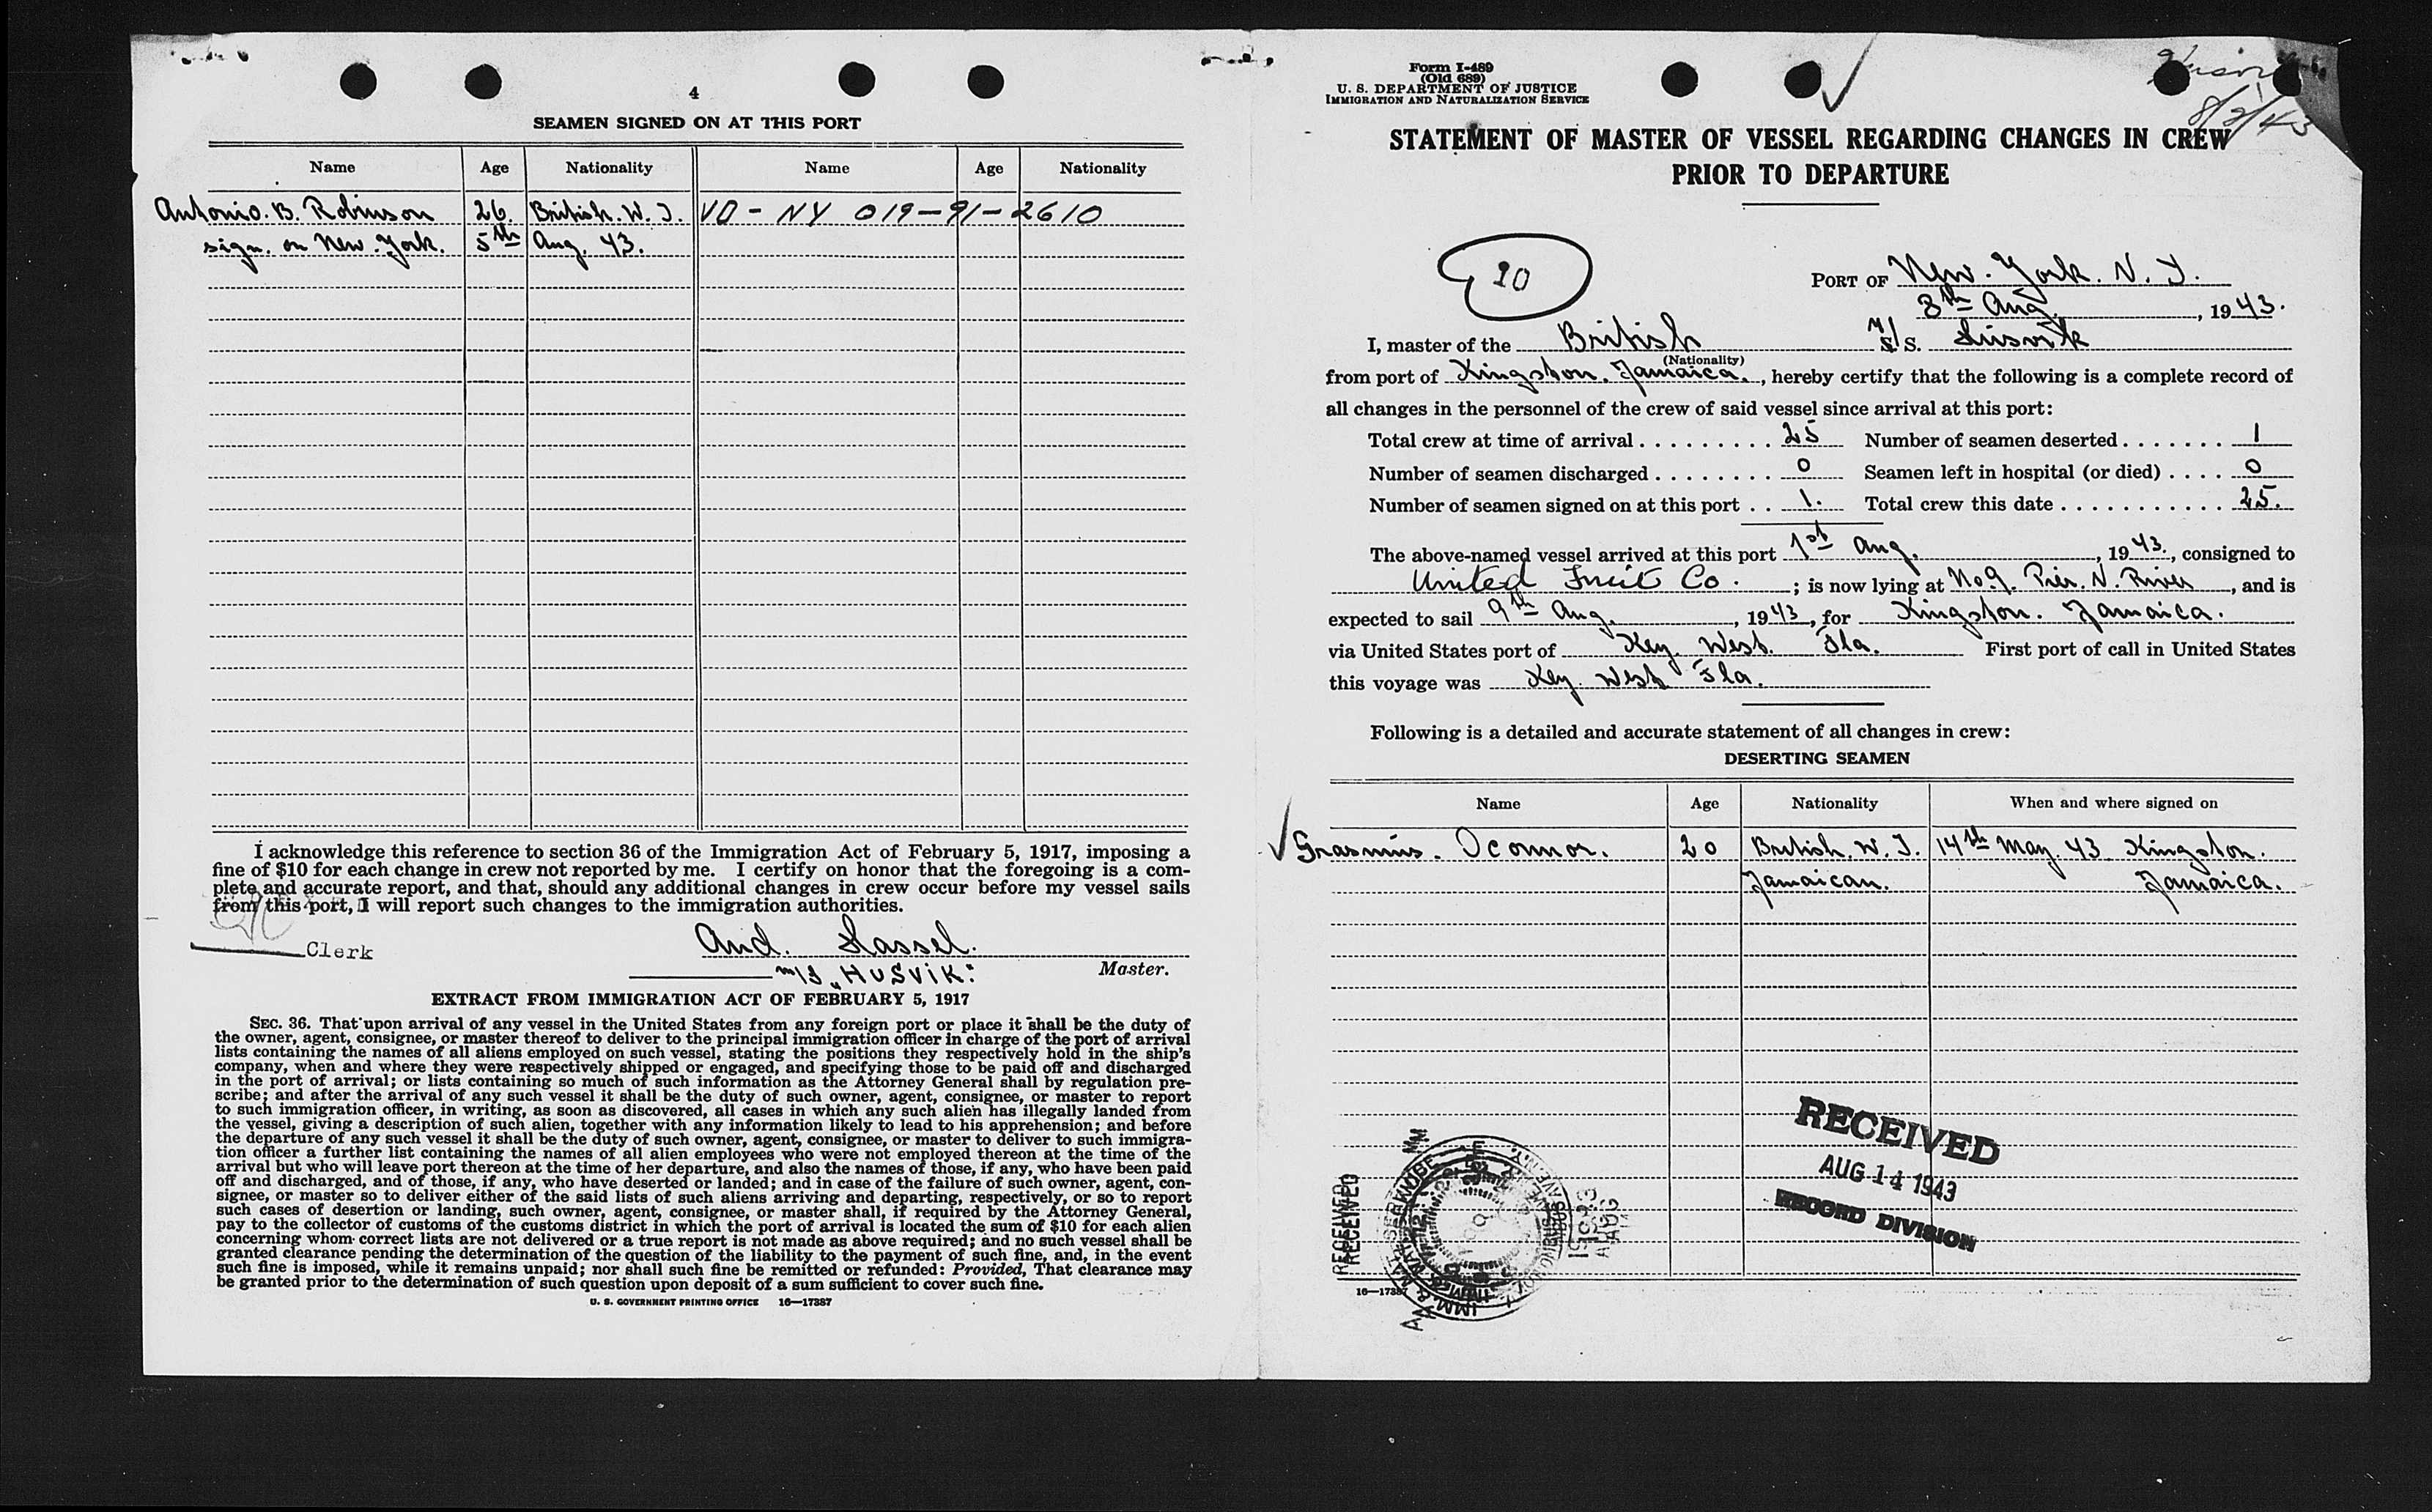 4
SEAMEN SIGNED ON AT THIS PORT
Name Age Nationality Name Age Nationality
Antonio. B. Robinson 26. British. W. I. VD - NY 019-91-2610
sign. on New. York. 5th Aug. 43.
I acknowledge this reference to section 36 of the Immigration Act of February 5, 1917, imposing a
fine of $10 for each change in crew not reported by me. I certify on honor that the foregoing is a com-
plete and accurate report, and that, should any additional changes in crew occur before my vessel sails
from this port, I will report such changes to the immigration authorities.
Clerk
And. Lassel.
m/s „HUSViK" Master.
EXTRACT FROM IMMIGRATION ACT OF FEBRUARY 5, 1917
SEC. 36. That upon arrival of any vessel in the United States from any foreign port or place it shall be the duty of
the owner, agent, consignee, or master thereof to deliver to the principal immigration officer in charge of the port of arrival
lists containing the names of all aliens employed on such vessel, stating the positions they respectively hold in the ship's
company, when and where they were respectively shipped or engaged, and specifying those to be paid off and discharged
in the port of arrival; or lists containing so much of such information as the Attorney General shall by regulation pre-
scribe; and after the arrival of any such vessel it shall be the duty of such owner, agent, consignee, or master to report
to such immigration officer, in writing, as soon as discovered, all cases in which any such alien has illegally landed from
the vessel, giving a description of such alien, together with any information likely to lead to his apprehension; and before
the departure of any such vessel it shall be the duty of such owner, agent, consignee, or master to deliver to such immigra-
tion officer a further list containing the names of all alien employees who were not employed thereon at the time of the
arrival but who will leave port thereon at the time of her departure, and also the names of those, if any, who have been paid
off and discharged, and of those, if any, who have deserted or landed; and in case of the failure of such owner, agent, con-
signee, or master so to deliver either of the said lists of such aliens arriving and departing, respectively, or so to report
such cases of desertion or landing, such owner, agent, consignee, or master shall, if required by the Attorney General,
pay to the collector of customs of the customs district in which the port of arrival is located the sum of $10 for each alien
concerning whom correct lists are not delivered or a true report is not made as above required; and no such vessel shall be
granted clearance pending the determination of the question of the liability to the payment of such fine, and, in the event
such fine is imposed, while it remains unpaid; nor shall such fine be remitted or refunded: Provided, That clearance may
be granted prior to the determination of such question upon deposit of a sum sufficient to cover such fine.
U. S. GOVERNMENT PRINTING OFFICE 16—17387
Form I-489
(Old 689)
U. S. DEPARTMENT OF JUSTICE
IMMIGRATION AND NATURALIZATION SERVICE
8/2/43
STATEMENT OF MASTER OF VESSEL REGARDING CHANGES IN CREW
PRIOR TO DEPARTURE
PORT OF New. York. N. Y.
8th Aug., 1943.
I, master of the British M/ S/S. Husvik
(Nationality)
from port of Kingston. Jamaica., hereby certify that the following is a complete record of
all changes in the personnel of the crew of said vessel since arrival at this port:
Total crew at time of arrival . . . . . . . . . 25 Number of seamen deserted . . . . . . . 1
Number of seamen discharged . . . . . . . . 0 Seamen left in hospital (or died) . . . . 0
Number of seamen signed on at this port . . 1. Total crew this date . . . . . . . . . . . 25.
The above-named vessel arrived at this port 1st Aug., 1943., consigned to
United Fruit Co.; is now lying at No9. Pier. N. River, and is
expected to sail 9th Aug., 1943, for Kingston. Jamaica.
via United States port of Key. West. Fla. First port of call in United States
this voyage was Key. West Fla.
Following is a detailed and accurate statement of all changes in crew:
DESERTING SEAMEN
Name Age Nationality When and where signed on
Grasmus. Oconnor. 20 British. W. I. 14th May. 43 Kingston.
Jamaican. Jamaica.
RECEIVED
AUG 14 1943
RECORD DIVISION
RECEIVED
16—17387